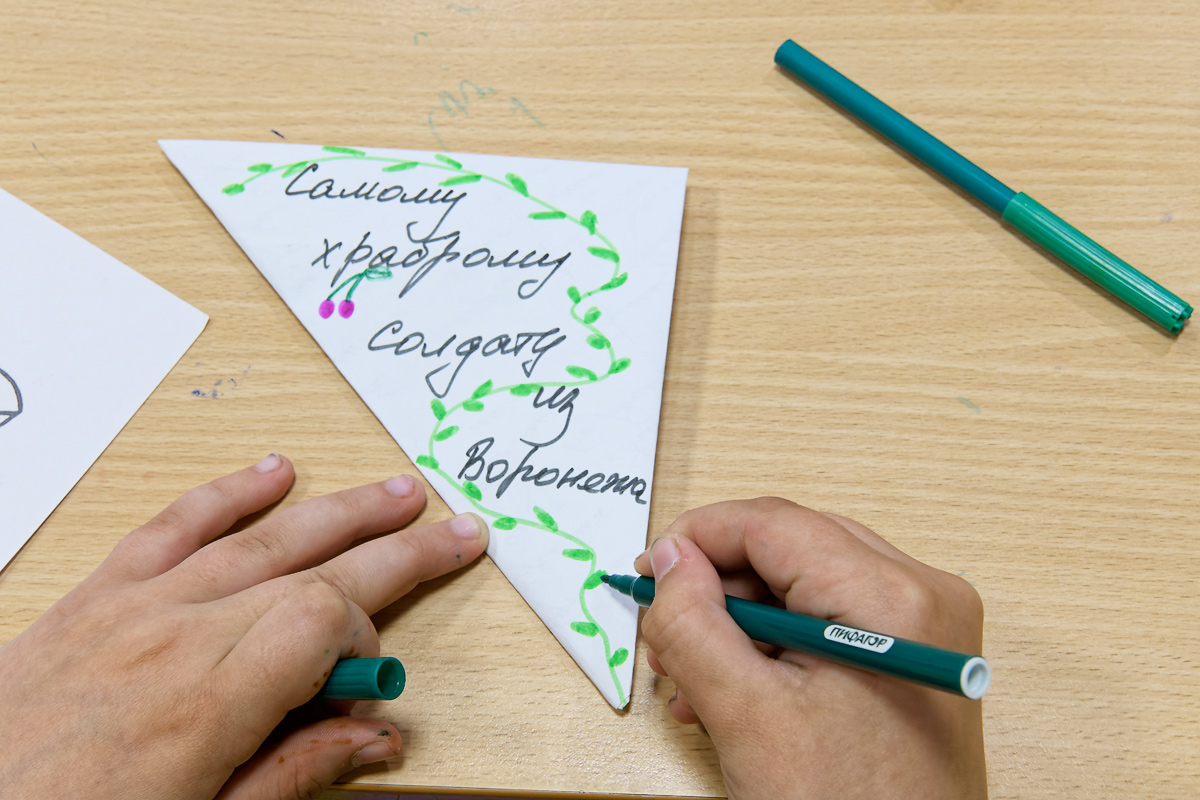 Самому
храброму
солдату
из
Воронежа
ПИФАГОР